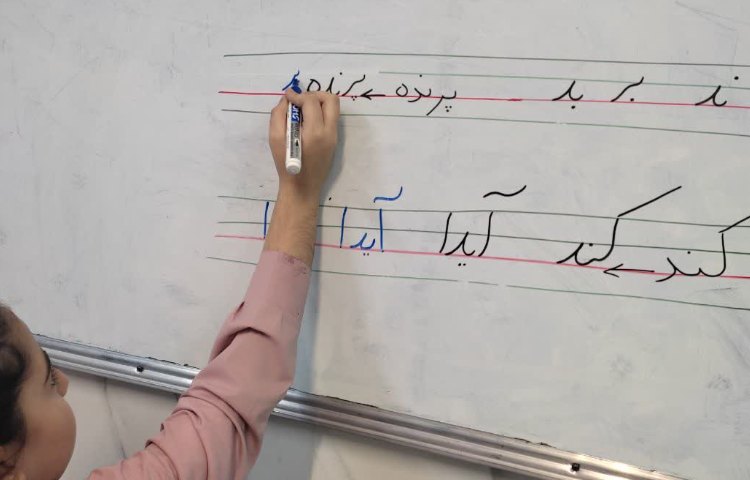 ند بر بد پرنده ← پرنده
کند ← کند آیدا آیدا ا